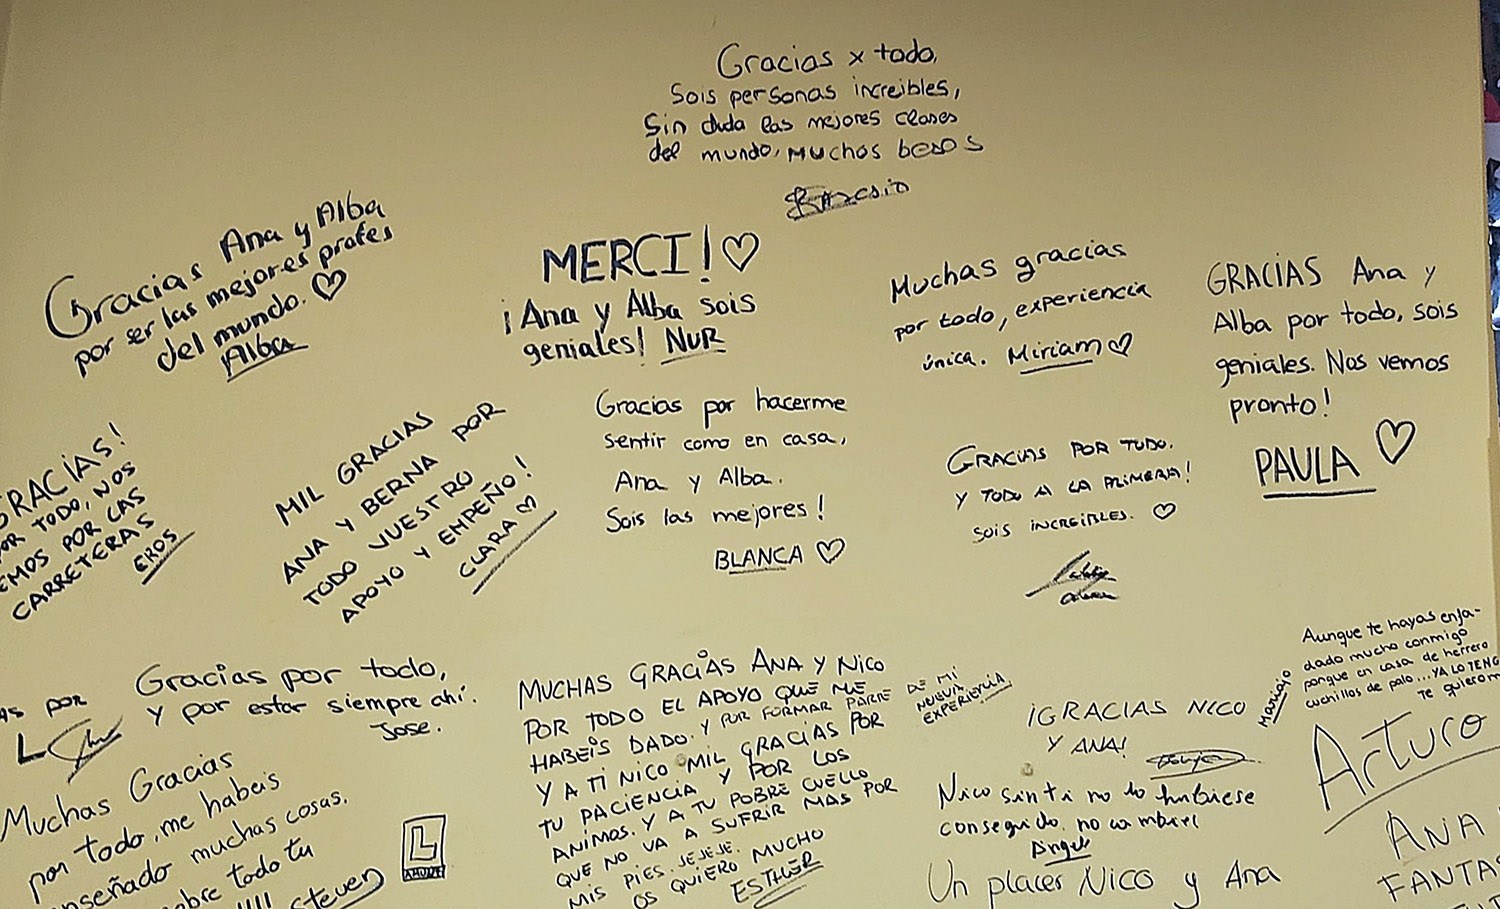 Gracias x todo,
Sois personas increibles,
Sin duda las mejores clases
del mundo, muchos besos
Gracias Ana y Alba
por ser las mejores profes
del mundo. ♡
Alba
MERCI! ♡
¡Ana y Alba sois
geniales! NUR
Muchas gracias
por todo, experiencia
única. Miriam ♡
GRACIAS Ana y
Alba por todo, sois
geniales. Nos vemos
pronto!
PAULA ♡
GRACIAS!
POR TODO, NOS
VEMOS POR LAS
CARRETERAS
EROS
MIL GRACIAS
ANA Y BERNA POR
TODO VUESTRO
APOYO Y EMPEÑO!
CLARA ♡
Gracias por hacerme
sentir como en casa,
Ana y Alba.
Sois las mejores!
BLANCA ♡
GRACIAS POR TODO.
Y TODO A LA PRIMERA!
SOIS INCREIBLES. ♡
AS POR
Gracias por todo,
y por estar siempre ahí.
Jose.
Muchas Gracias
por todo, me habeis
enseñado muchas cosas.
sobre todo tu
Steven
L
MUCHAS GRACIAS ANA Y NICO
POR TODO EL APOYO QUE ME
HABEIS DADO. Y POR FORMAR PARTE DE MI
NUEVA
EXPERIENCIA,
Y A TI NICO MIL GRACIAS POR
TU PACIENCIA Y POR LOS
ANIMOS. Y A TU POBRE CUELLO
QUE NO VA A SUFRIR MAS POR
MIS PIES. JEJEJE.
OS QUIERO MUCHO
ESTHER
¡GRACIAS NICO
Y ANA!
Nico sin ti no lo hubiese
conseguido, no cambies
Angel
Un placer Nico y Ana
Aunque te hayas enfa-
dado mucho conmigo
porque en casa de herrero
cuchillos de palo... YA LO TENG
Te quiero m
Mariajo
Arturo
ANA
FANTAS